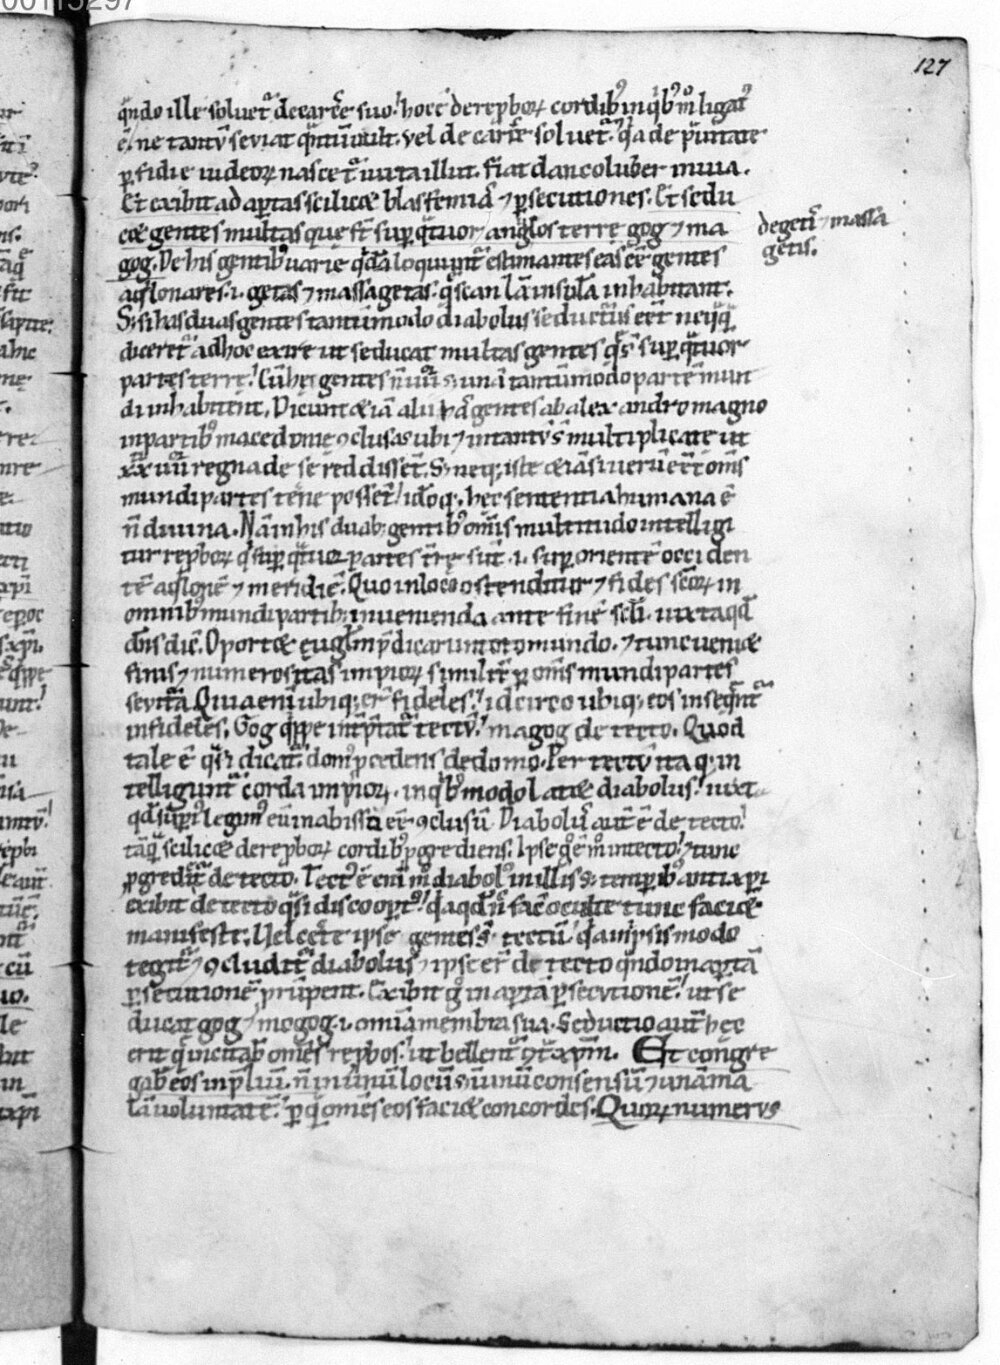 127
qndo ille soluet decarcē suo. hoc ē de reprbor cordib; in qib; m ligat
ē. ne tantū seviat qntū uult. vel de carcē soluet. qa de pūitate
pfidie iudeor nascet iuxta illut. fiat dan coluber in uia.
Et exibit ad aptas scilicet blasfemiā & psecutiones. Et sedu
cet gentes multas que st sup qtuor anglos terre gog & ma
gog. De his gentib; uarie qdā locuti st estimantes eas eē gentes
aqlonares .i. getas & massagetas. qs canlā insulā inhabitant.
S; si has duas gentes tantūmodo diabolus seducturus eēt
diceret adhoc exire ut seducat multas gentes q st sup qtuor
partes terre. Cū he gentes n unā tantūmodo partē mun
di inhabitent. Dicunt etiā alii has gentes ab alexandro magno
in partib; macedonie 9clusas ubi & in tantū st multiplicate ut
xx uii regna de se reddissēt. S; neq; iste etiā si uerū eēt oms
mundi partes tene possēt. idoq; hec sententia humana ē
n diuina. Nā in his duab; gentib; omis multitudo intelligi
tur reprbor q sup qtuor partes tre sūt .i. sup orientē occiden
tē aqlonē & meridiē. Quo in loco ostenditur & fides scor in
omnib; mundi partib; inuenienda ante finē scli. iuxta qd
dns dic. Oportet euglm pdicari in toto mundo. & tunc ueniet
finis & numerositas impior similit p oms mundi partes
sevitā. Quia eni ubiq; er fideles. idcirco ubiq; eos inseqnt
infideles. Gog qppe intpretat tectū. magog de tecto. Quod
tale ē qsi dicat. dom pcedens de domo. Per tectū itaq; in
telligunt corda impior. in qb; modo latet diabolus. iuxt
qd supi legim eū in abisso eē 9clusū. Diabolus aut ē de tecto.
tāq scilicet de reprbor cordib; pgrediens. Ipse g ē m in tecto. & tunc
pgredit de tecto. Tect ē eni m diabol in illis s; temporib; antixpi
exibit de tecto qsi discoopt. qa qd n facē oculte tunc faciet
manifeste. Uel certe ipse gentes s tectū. qa in ipsis modo
tegit & 9cludit diabolus & ipse er de tecto qndo in aptā
psecutionē prūpent. Exibit g in aptā psecutionē. ut se
ducat gog & magog .i. omīa membra sua. Seductio aut hec
erit q incitab omes reprbos. ut bellent 9t xpm. Et congre
gab eos in pliū. n in unū locū s; in unū consensū & unā ma
lā uoluntatē. p q omes eos faciet concordes. Quor numerus
de getis & massa
getis.